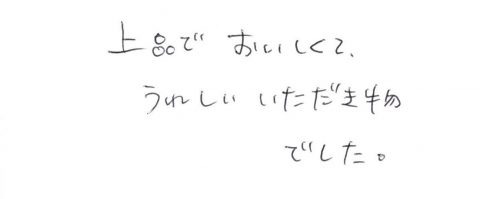 上品で おいしくて、
うれしい いただき物
でした。